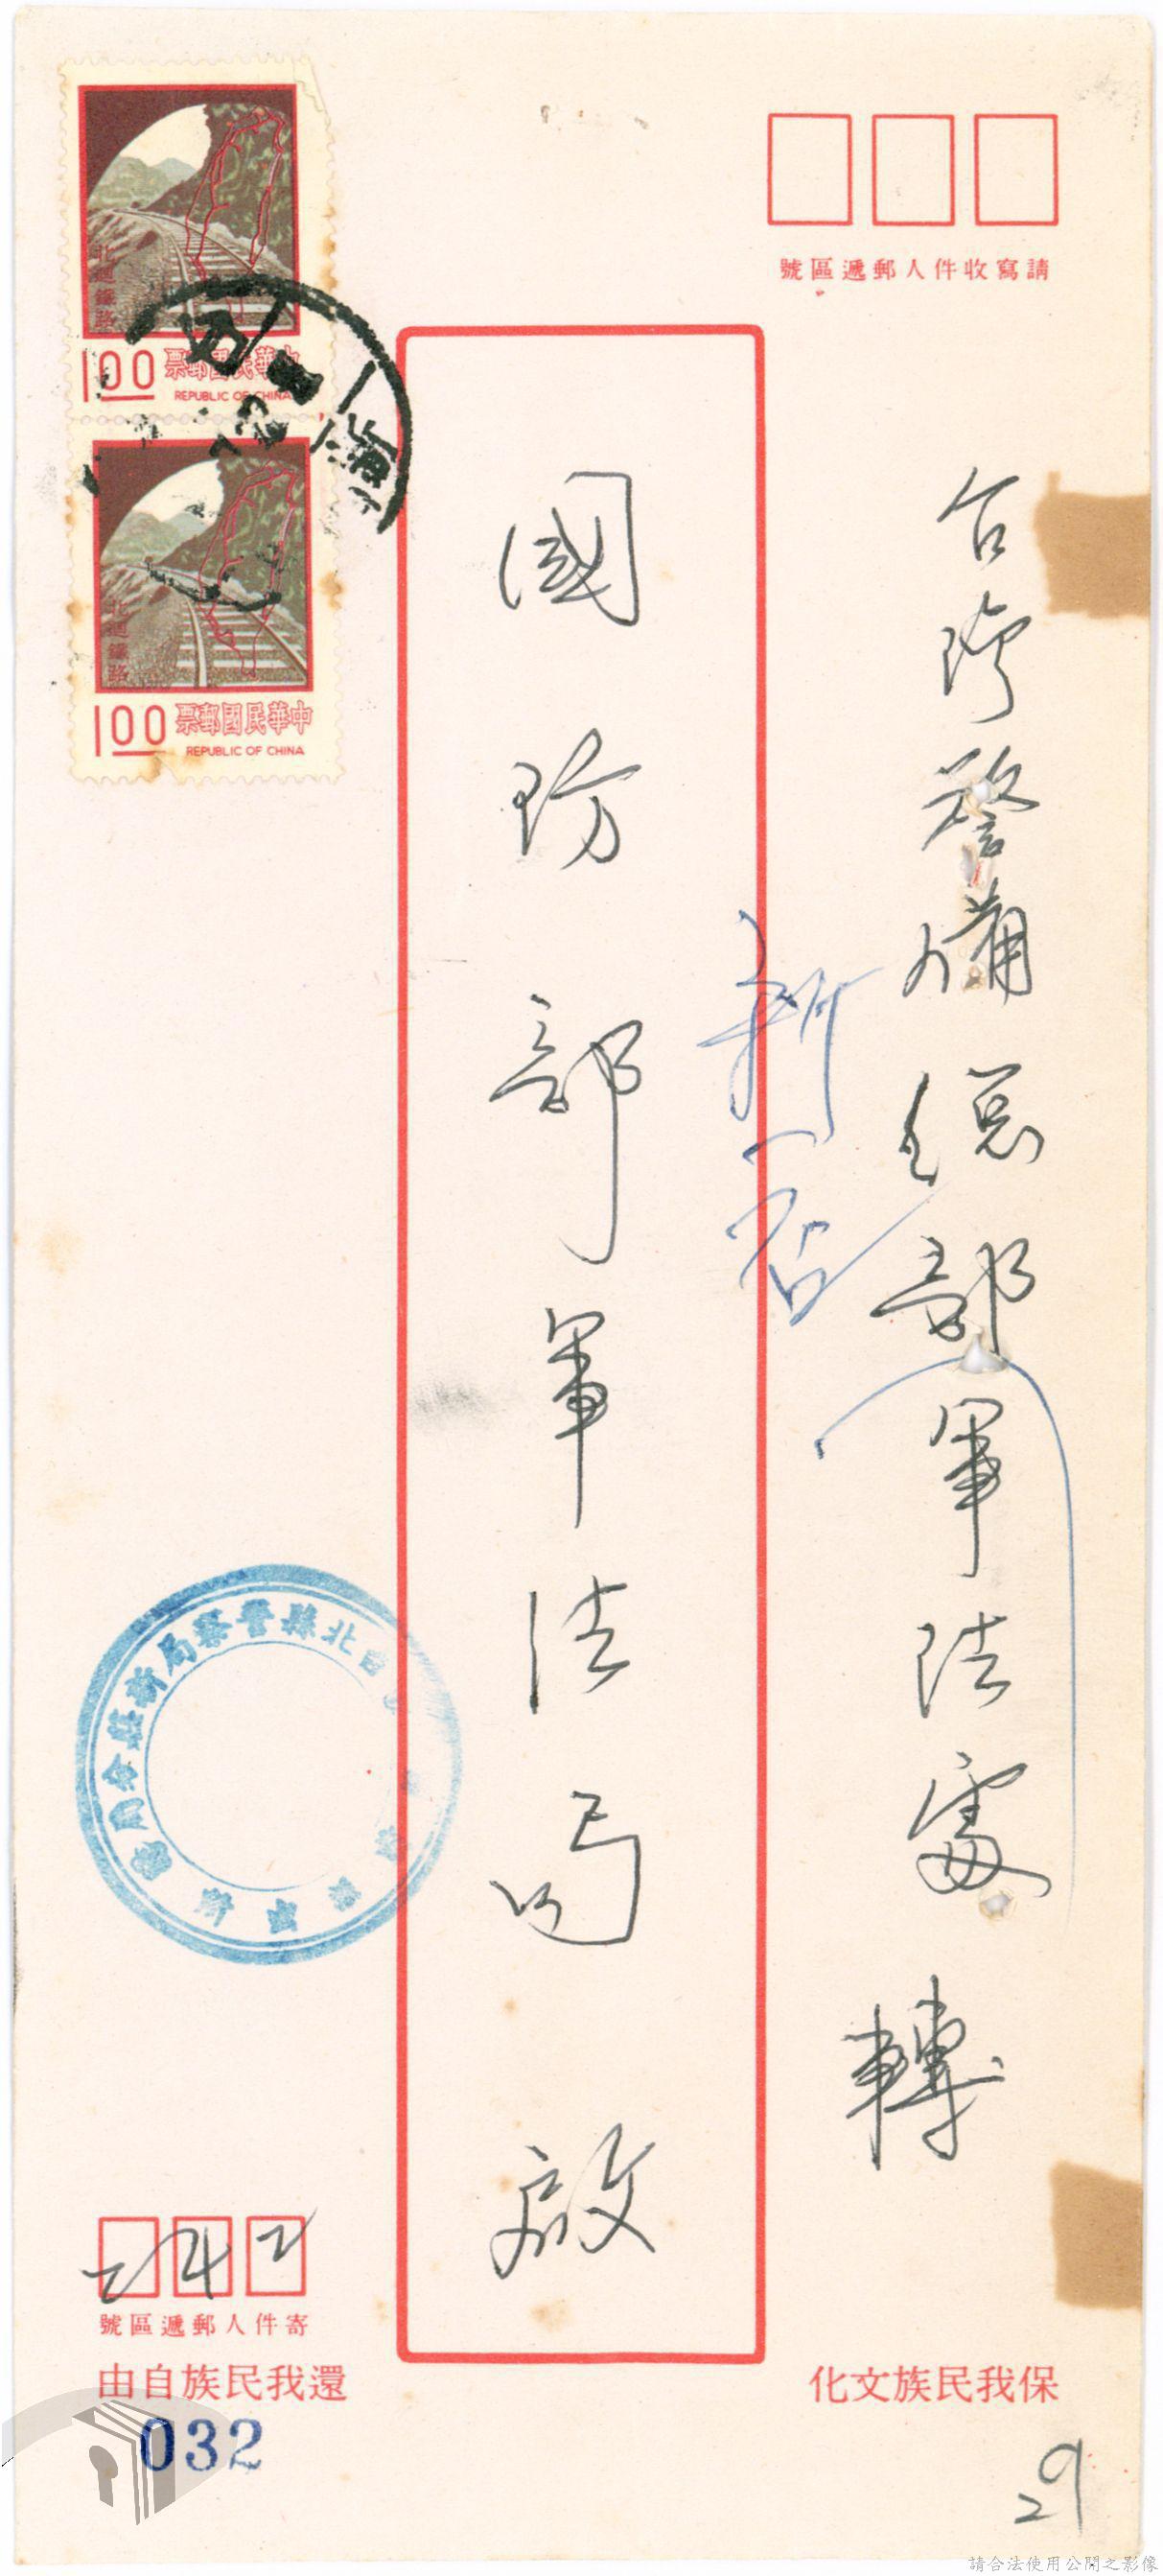 請寫收件人郵遞區號
台灣警備總部軍法處 轉
新店
國防部軍法司 啟
北迴鐵路
1.00 中華民國郵票
REPUBLIC OF CHINA
北迴鐵路
1.00 中華民國郵票
REPUBLIC OF CHINA
台北縣警察局新莊
二四二
寄件人郵遞區號
保我民族文化
還我民族自由
032
29
請合法使用公開之影像